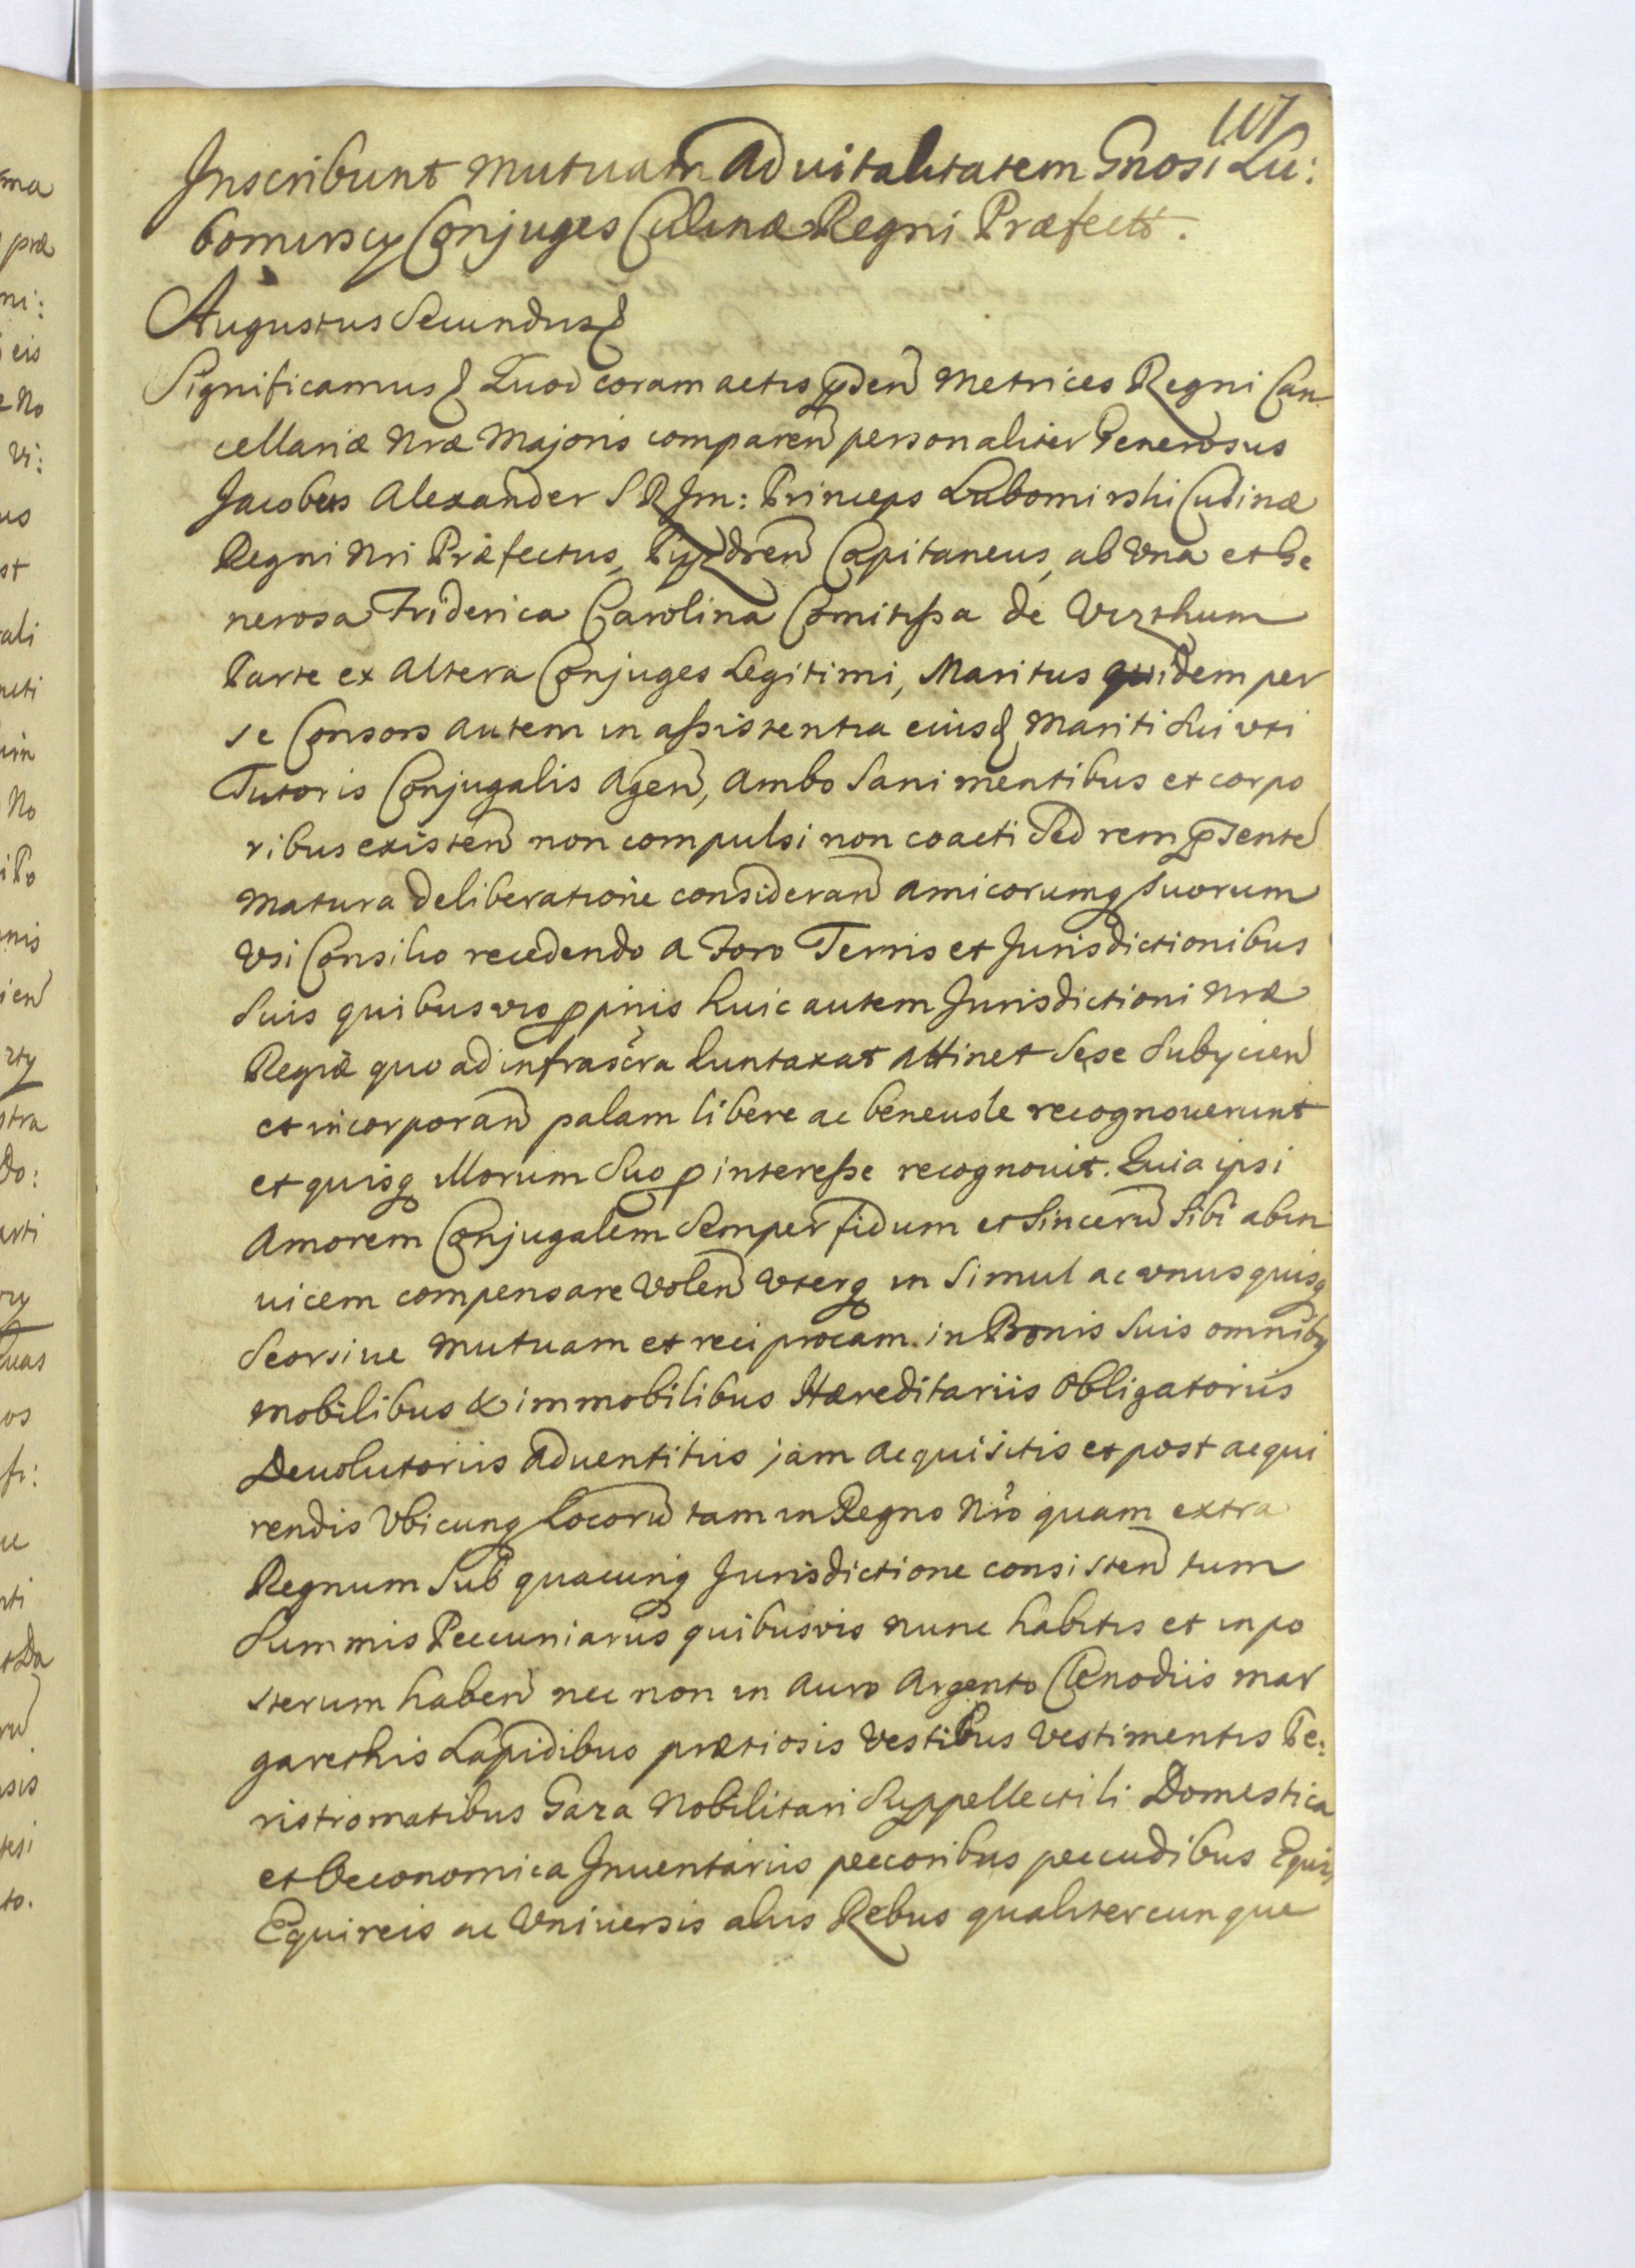 107
Inscribunt mutuam Advitalitatem Gnosi Lu:
bomirscy Conjuges Culinæ Regni Præfectt.
Augustus Secundus
Significamus Quod coram actis pñden Metrices Regni Can
cellariæ Nræ Majoris comparen personaliter Generosus
Jacobus Alexander S R Im: Princeps Lubomirski Culinæ
Regni Nri Præfectus, Pyzdren Capitaneus, ab Vna et Ge
nerosa Friderica Carolina Comitissa de Vizthum
Parte ex Altera Conjuges Legitimi, Maritus quidem per
se Consors autem in assistentia eiusd Mariti Sui vti
Tutoris Conjugalis Agen, Ambo Sani mentibus et corpo
ribus existen non compulsi non coacti Sed rem pñsente
matura deliberatione consideran amicorumq suorum
Vsi Consilio recedendo a Foro Terris et Jurisdictionibus
Suis quibusvis pprijs huic autem Jurisdictioni Nræ
Regiæ quo ad infrascra duntaxat attinet Sese Subycien
et incorporan palam libere ac beneuole recognouerunt
et quisq illorum Suo p interesse recognouit. Quia ipsi
Amorem Conjugalem Semper fidum et Sinceru Sibi abin
uicem compensare Volen Vterq in Simul ac vnusquisq
Seorsiue mutuam et reciprocam in Bonis Suis omniby
mobilibus & immobilibus Hæreditariis Obligatoriis
Deuolutoriis Aduentitiis jam acquisitis et post acqui
rendis Vbicunq Locoru tam in Regno Nro quam extra
Regnum Sub quacunq Jurisdictione consisten tum
Summis Pecuniarus quibusvis nunc habitis et inpo
sterum haben nec non in Auro Argento Clenodiis mar
garethis Lapidibus prætiosis Vestibus Vestimentis Pe:
ristromatibus Gaza Nobilitari Suppellectili Domestica
et Oeconomica Inuentariis pecoribus pecudibus Equis
Equireis ac Vniuersis aliis Rebus qualitercunque